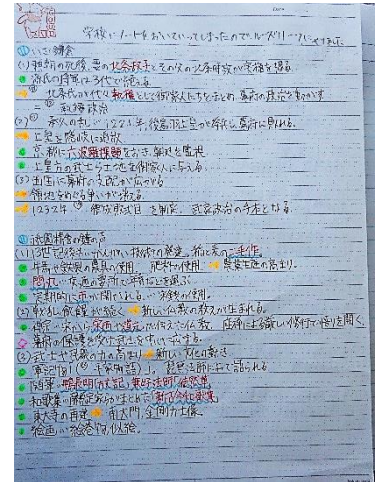 学校にノートをおいていってしまったのでルーズリーフにやりました
(1) 頼朝の死後、妻の北条政子とその父の北条時政が実権を握る。
源氏の将軍は3代で絶える。
北条氏が代々執権として御家人たちをまとめ、幕府の政治を動かす
= 執権政治
(2) 承久の乱… 1221年、後鳥羽上皇
上皇を隠岐に追放
京都に六波羅探題をおき、朝廷を監視
上皇方の武士の土地を御家人に与える
(3) 全国に幕府の支配が広がる
領地をめぐる争いが増える
1232年 御成敗式目を制定。武家政治の手本となる。
(1) 13世紀
牛馬や鉄製の農具の使用、肥料の使用 農業生産の高まり。
問丸…
定期的に市が開かれる
(2) 戦乱、飢饉が続く 新しい仏教の教えが生まれる。
禅宗…宋から栄西や道元が伝えた仏教。座禅による厳しい修行で悟りを開く。
幕府の保護を受け
(3) 武士や民衆の力の高まり 新しい文化の動き
軍記物「平家物語」 琵琶法師によって語られる
随筆…鴨長明「方丈記」兼好法師「徒然草」
和歌集…朝廷から生まれた「新古今和歌集」
東大寺の再建 南大門、金剛力士像。
絵画…絵巻物、似絵